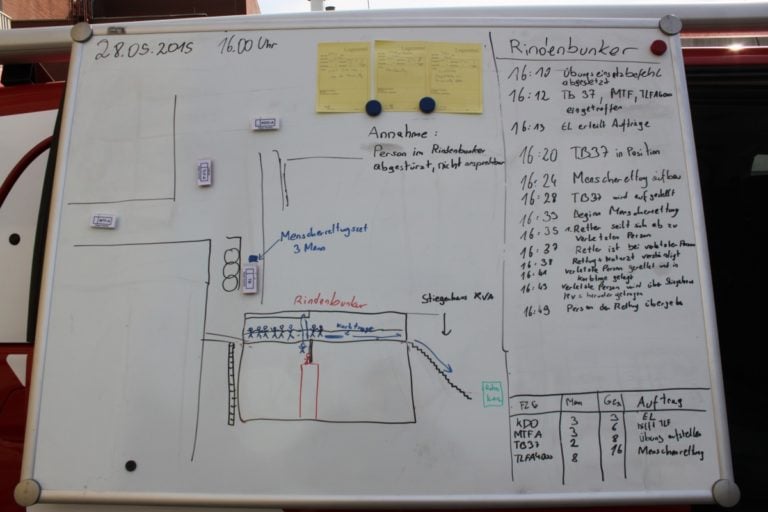 28.05.2015 16.00 Uhr
Annahme:
Person im Rindenbunker
abgestürzt, nicht ansprechbar
Menschenrettungsset
3 Mann
Rindenbunker
Stiegenhaus KVA
Korbtrage
Rindenbunker
16:10 Übungseinsatzbefehl
abgesetzt
16:12 Tb 37, MTF, TLFA4000
eingetroffen
16:13 EL erteilt Aufträge
16:20 TB37 in Position
16:24 Menschenrettung aufbau
16:28 TB37 wird aufgestellt
16:33 Beginn Menschenrettung
16:35 1. Retter seilt sich ab zu
verletzten Person
16:37 Retter ist bei verletzter Person
16:38 Rettung + Notarzt verständigt
16:41 verletzte Person gerettet und in
Korbtrage gelegt
16:43 verletzte Person wird über Stiegenhaus
KVA herunter getragen
16:49 Person der Rettung übergeben
FZG Man Ges Auftrag
KDO 3 3 EL
MTFA 3 6 hilft TLF
TB37 2 8 Übung aufstellen
TLFA4000 8 16 Menschenrettung